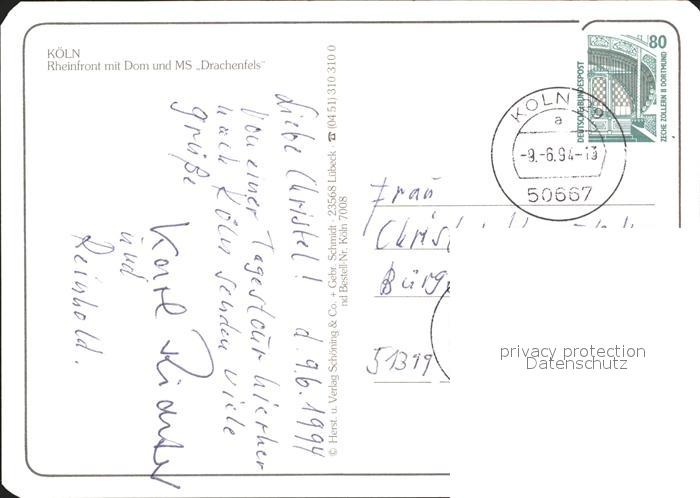 KÖLN
Rheinfront mit Dom und MS „Drachenfels"
Liebe Christel! d. 9.6.1994
Von einer Tagestour hierher
nach Köln senden viele
Grüße
Karl
und
Reinhold.
© Herst. u. Verlag Schöning & Co. + Gebr. Schmidt · 23568 Lübeck · ☎ (04 51) 310 310 0
nd Bestell-Nr. Köln 7008
80
DEUTSCHE BUNDESPOST
ZECHE ZOLLERN II DORTMUND
KÖLN
a
-9.-6.94-13
50667
Frau
Christ
Bürg
51399
privacy protection
Datenschutz